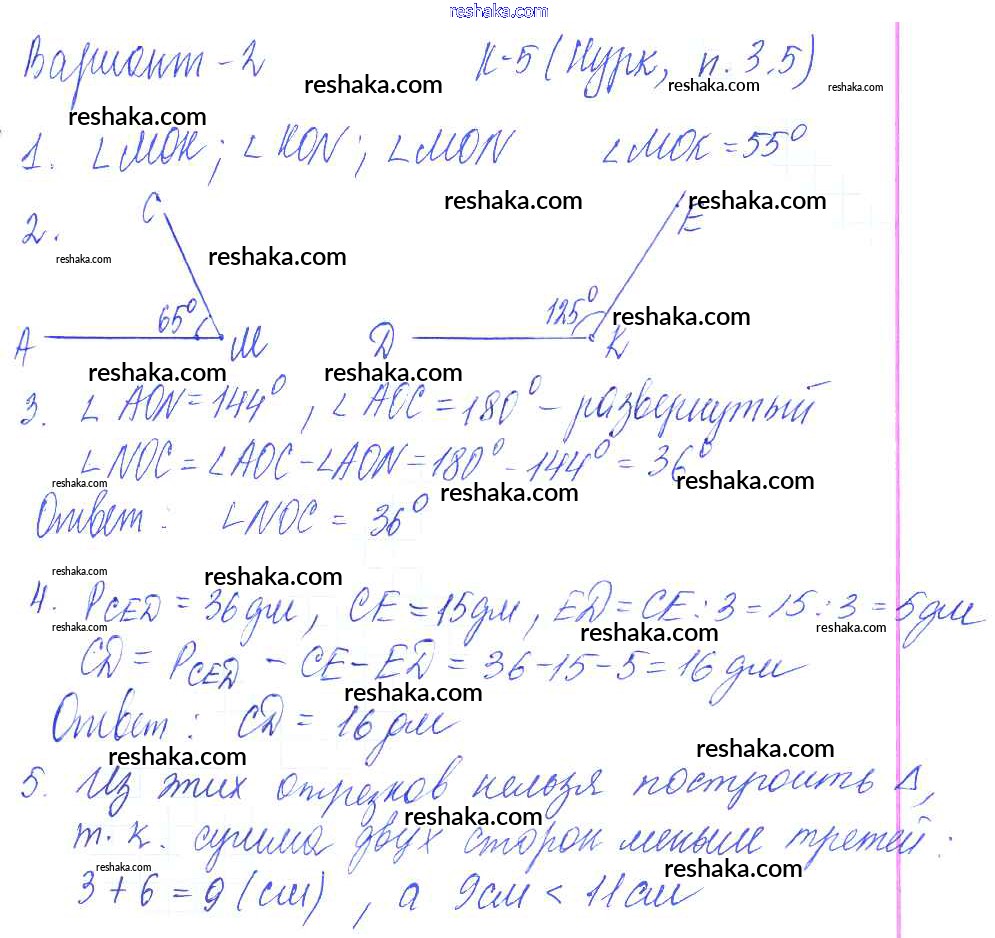 reshaka.com
Вариант-2 К-5 (Нурк, п. 3.5)
reshaka.com reshaka.com reshaka.com
reshaka.com
1. ∠MOK; ∠KON; ∠MON ∠MOK = 55°
reshaka.com reshaka.com
2. C E
reshaka.com reshaka.com
65° 125° reshaka.com
A M D K
reshaka.com reshaka.com
3. ∠AON = 144°, ∠AOC = 180° - развернутый
∠NOC = ∠AOC - ∠AON = 180° - 144° = 36°
reshaka.com reshaka.com reshaka.com
Ответ: ∠NOC = 36°
reshaka.com reshaka.com
4. P CED = 36 дм, CE = 15 дм, ED = CE : 3 = 15 : 3 = 5 дм
reshaka.com reshaka.com reshaka.com
CD = P CED - CE - ED = 36 - 15 - 5 = 16 дм
reshaka.com
Ответ: CD = 16 дм
reshaka.com reshaka.com
5. Из этих отрезков нельзя построить Δ,
reshaka.com
т. к. сумма двух сторон меньше третей:
reshaka.com reshaka.com
3 + 6 = 9 (см), а 9 см < 11 см